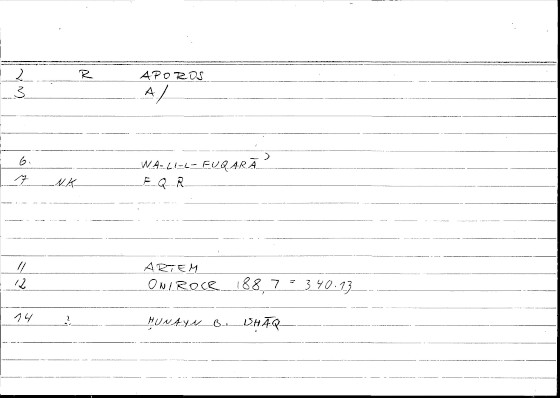 2 R APOROS
3 A/
6. WA-LI-L-FUQARĀʾ
7 NK F Q R
11 ARTEM
12 ONIROCR 188,7 = 340.13
14 ḤUNAYN B. ISḤĀQ